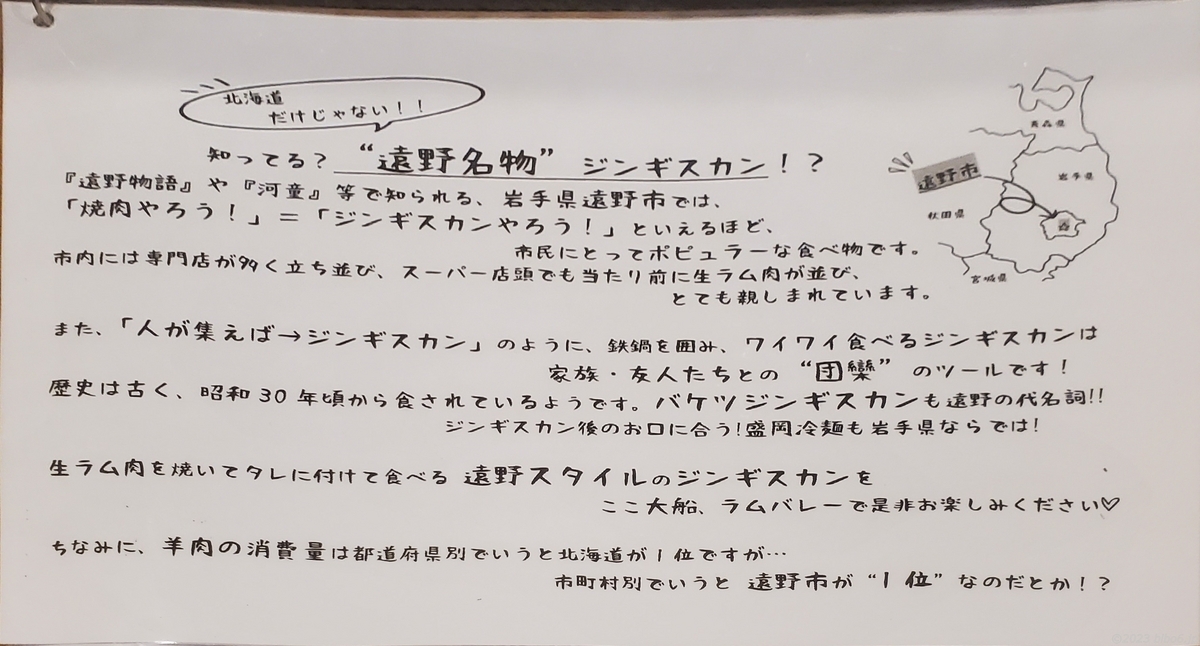 北海道
だけじゃない！！
知ってる？ “遠野名物” ジンギスカン！？
『遠野物語』や『河童』等で知られる、岩手県遠野市では、
「焼肉やろう！」＝「ジンギスカンやろう！」といえるほど、
市民にとってポピュラーな食べ物です。
市内には専門店が多く立ち並び、スーパー店頭でも当たり前に生ラム肉が並び、
とても親しまれています。
また、「人が集えば→ジンギスカン」のように、鉄鍋を囲み、ワイワイ食べるジンギスカンは
家族・友人たちとの “団欒” のツールです！
歴史は古く、昭和30年頃から食されているようです。バケツジンギスカンも遠野の代名詞!!
ジンギスカン後のお口に合う！盛岡冷麺も岩手県ならでは！
生ラム肉を焼いてタレに付けて食べる 遠野スタイルのジンギスカンを
ここ大船、ラムバレーで是非お楽しみください♡
ちなみに、羊肉の消費量は都道府県別でいうと北海道が1位ですが…
市町村別でいうと 遠野市が “1位” なのだとか！？
青森県
遠野市
岩手県
秋田県
宮城県